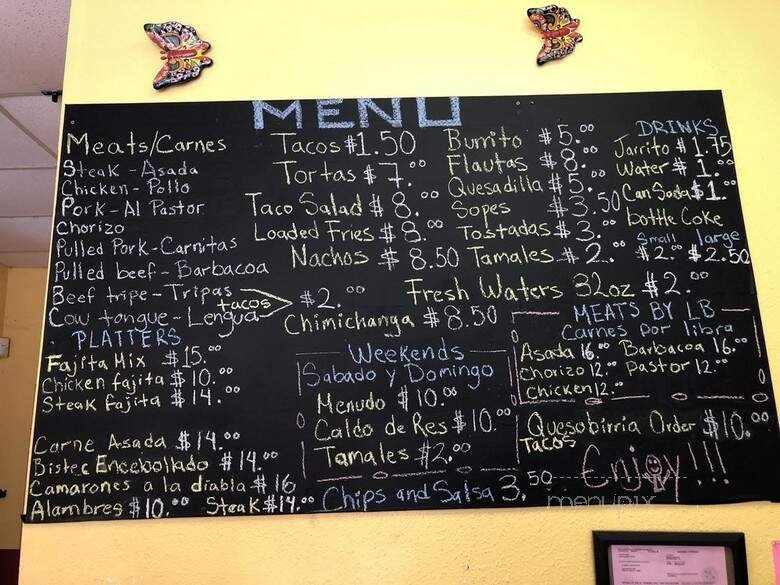 MENU
Meats/Carnes
Steak - Asada
Chicken - Pollo
Pork - Al Pastor
Chorizo
Pulled Pork - Carnitas
Pulled beef - Barbacoa
Beef tripe - Tripas
Cow tongue - Lengua
tacos $2.00
Tacos $1.50
Tortas $7.00
Taco Salad $8.00
Loaded Fries $8.00
Nachos $8.50
Burrito $5.00
Flautas $8.00
Quesadilla $5.00
Sopes $3.50
Tostadas $3.00
Tamales $2.00
DRINKS
Jarrito $1.75
Water $1.00
Can Soda $1.00
bottle Coke
Small large
$2.00 $2.50
Fresh Waters 32oz $2.00
Chimichanga $8.50
PLATTERS
Fajita Mix $15.00
Chicken fajita $10.00
Steak fajita $14.00
Carne Asada $14.00
Bistec Encebollado $14.00
Camarones a la diabla $16
Alambres $10.00 Steak $14.00
Weekends
Sabado y Domingo
Menudo $10.00
Caldo de Res $10.00
Tamales $2.00
Chips and Salsa 3.50
MEATS BY LB
Carnes por libra
Asada 16.00 Barbacoa 16.00
Chorizo 12.00 Pastor 12.00
Chicken 12.00
Quesobirria Order $10.00
Tacos
Enjoy!!!
menupix